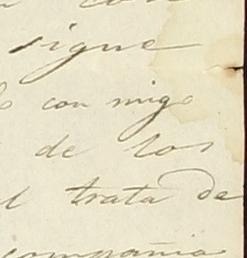 con
sigue
con migo
de los
l trata de
compañia